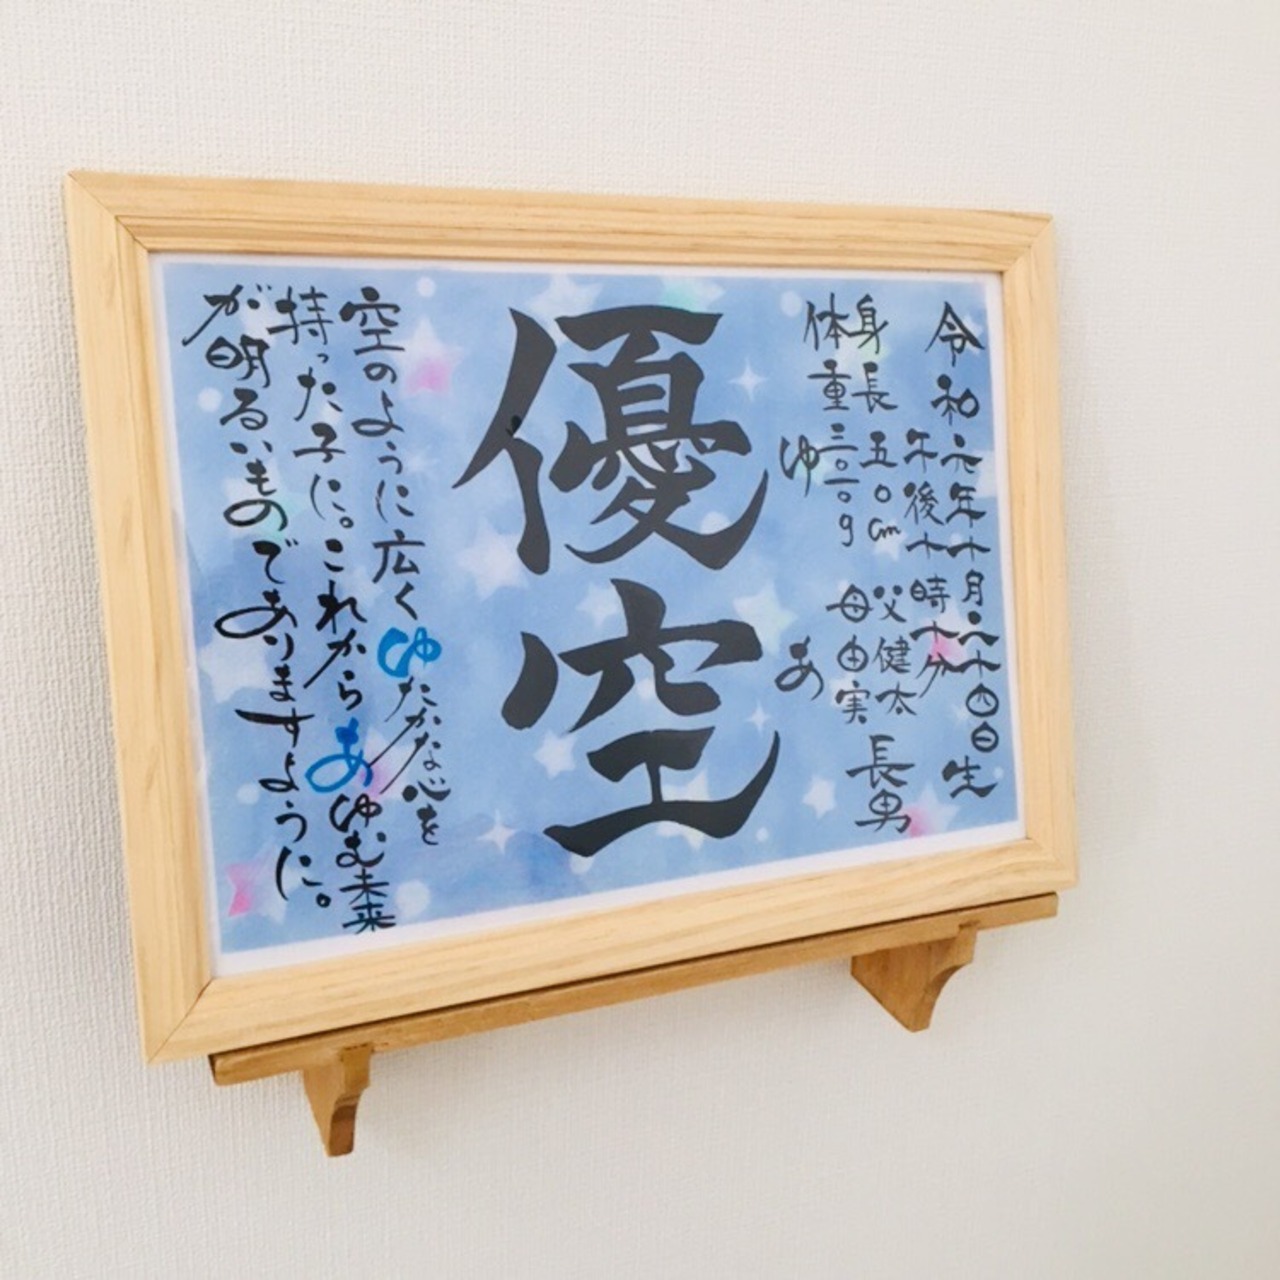 令和元年十月二十四日生
午後十時十分
身長五〇cm
体重三〇一〇g
父健太
母由実
長男
ゆ
あ
優空
空のように広くゆたかな心を
持った子に。これからあゆむ未来
が明るいものでありますように。